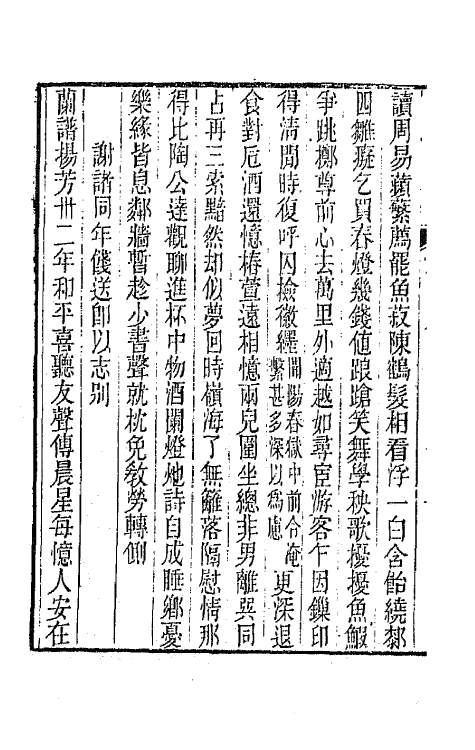 讀周易蘋蘩薦罷魚菽陳鶴髮相看浮一白含飴繞郗
四雛癡乞買春燈幾錢値踉蹌笑舞學秧歌擾擾魚鰕
爭跳擲尊前心去萬里外適越如尋宦游客乍因鏁印
得清閒時復呼囚撿徽纆開陽春獄中前令淹繫甚多深以爲慮更深退
食對卮酒還憶椿萱遠相憶兩兒圍坐總非男離巽同
占再三索黯然却似夢回時嶺海了無籬落隔慰情那
得比陶公達觀聊進杯中物酒闌燈灺詩自成睡鄉憂
樂緣皆息鄰牆暫趁少書聲就枕免敎勞轉側
謝諸同年餞送卽以志別
蘭譜揚芳卅二年和平喜聽友聲傳晨星每憶人安在